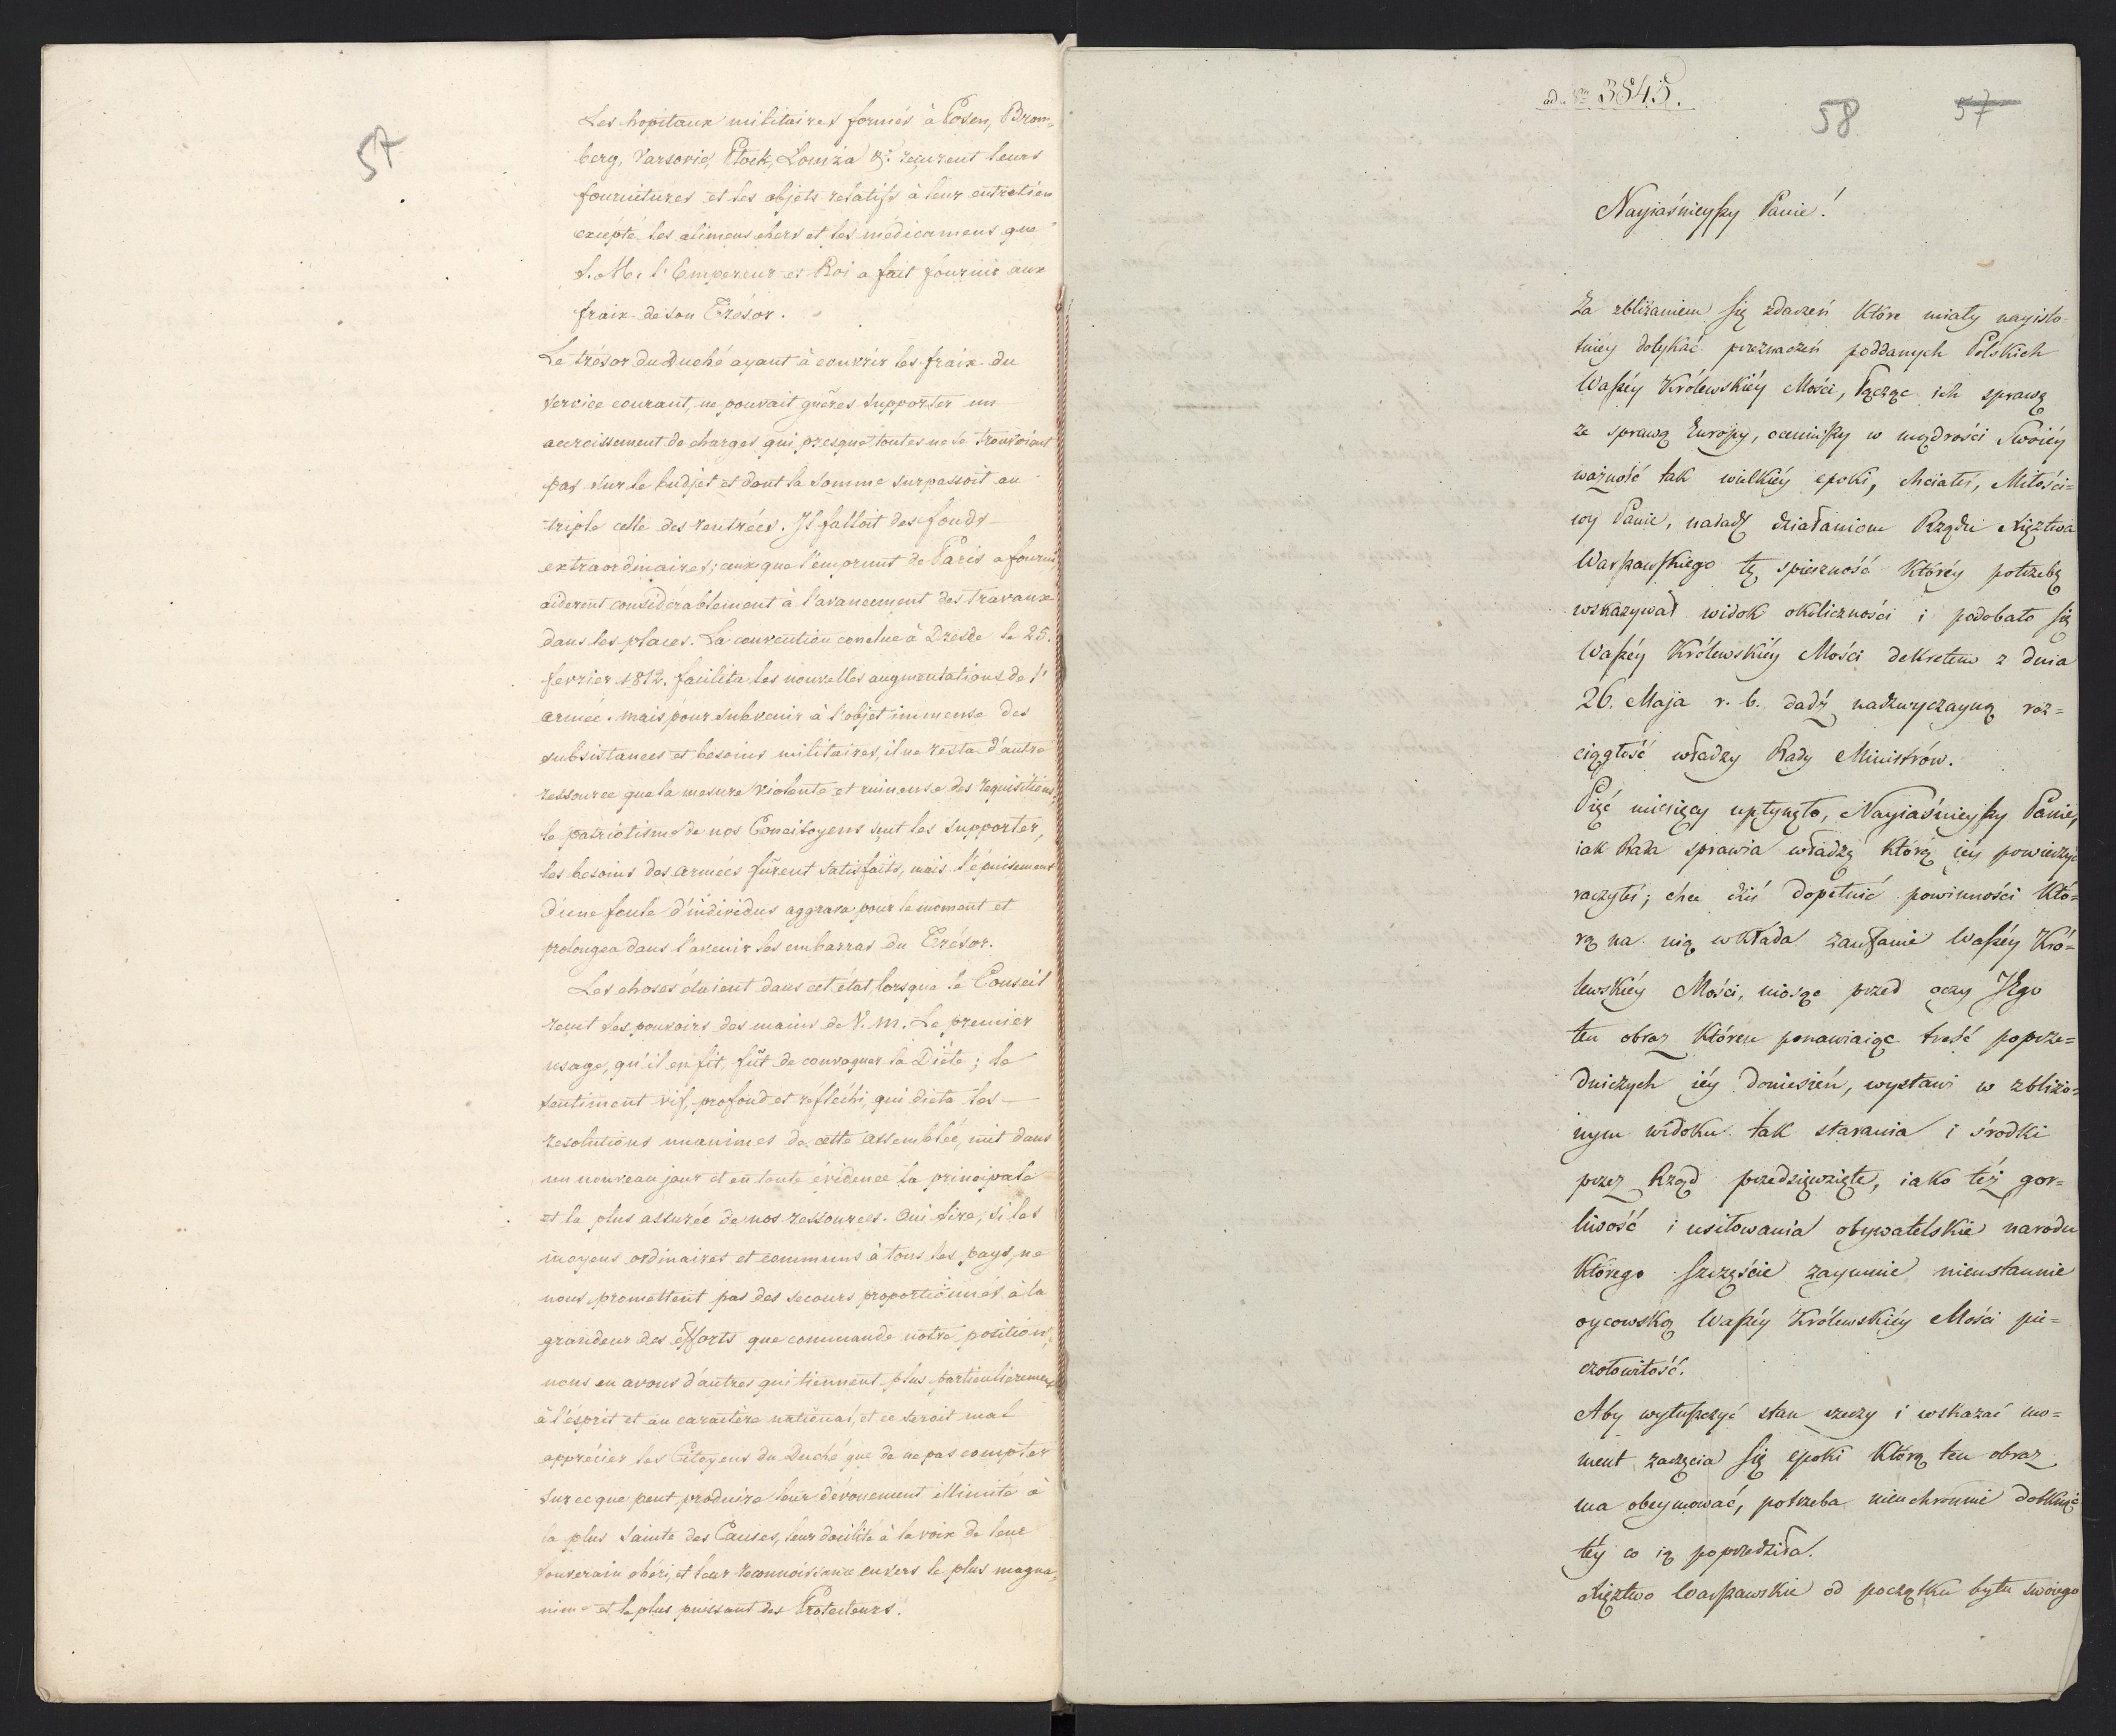 57
Les hopitaux militaires formés à Posen, Brom=
berg, Varsovie, Plock, Lomża &c. reçurent leurs
fournitures et les objets relatifs à leur entretien
excépté les alimens chers et les médicamens que
S. M. l'Empereur et Roi a fait fournir aux
fraix de son Trésor.
Le trésor du Duché ayant à couvrir les fraix du
service courant, ne pouvait guères supporter un
accroissement de charges qui presque toutes ne se trouvoient
pas sur le budjet et dont la somme surpassoit au
triple celle des rentrées. Il falloit des fonds
extraordinaires; ceux que l'emprunt de Paris a fourni,
aiderent considérablement à l'avancement des travaux
dans les places. La convention conclue à Dresde le 25.
fevrier 1812. facilita les nouvelles augmentations de l'
armée. mais pour subvenir à l'objet immense des
subsistances et besoins militaires, il ne resta d'autre
ressource que la mesure violente et ruineuse des requisitions;
le patriotisme de nos Concitoyens sut les supporter,
les besoins des armées fûrent satisfaits, mais l'épuisement
d'une foule d'individus aggrava pour le moment et
prolongea dans l'avenir les embarras du Trésor.
Les choses étaient dans cet état, lorsque le Conseil
reçut les pouvoirs des mains de V. M. Le premier
usage, qu'il en fit, fût de convoquer la Diéte; le
sentiment vif, profond et réfléchi, qui dicta les
resolutions unanimes de cette assemblée, mit dans
un nouveau jour et en toute évidence la principale
et la plus assurée de nos ressources. Oui Sire, si les
moyens ordinaires et communs à tous les pays, ne
nous promettent pas des secours proportionnés à la
grandeur des éfforts que commande notre position,
nous en avons d'autres qui tiennent plus particulierement
à l'ésprit et au caractère national, et ce seroit mal
apprécier les Citoyens du Duché que de ne pas compter
sur ce que peut produire leur dévouement illimité à
la plus sainte des Causes, leur docilité à la voix de leur
souverain chéri, et leur reconnoissance envers le plus magna=
nime et le plus puissant des Protecteurs.
ad Nm 3845.
58 57
Nayiaśnieyszy Panie!
Za zbliżaniem się zdarzeń które miały nayisto=
tniey dotykać przeznaczeń poddanych Polskich
Waszéy Królewskiéy Mości, łącząc ich sprawę
ze sprawą Europy, oceniwszy w mądrości Swoiéy
ważność tak wielkiéy epoki, chciałeś, Miłości=
wy Panie, nadadź działaniom Rządu Xięztwa
Warszawskiego tę spieszność któréy potrzebę
wskazywał widok okoliczności i podobało się
Waszéy Królewskiéy Mości dekretem z dnia
26. Maja r. b. dadź nadzwyczayną roz=
ciągłość władzy Rady Ministrów.
Pięć miesięcy upłynęło, Nayiaśnieyszy Panie,
iak Rada sprawia władzę którą iéy powierzyć
raczyłeś; chce dziś dopełnić powinności któ=
rą na nią wkłada zaufanie Waszéy Kró=
lewskiéy Mości, niosąc przed oczy Jego
ten obraz któren ponawiaiąc treść poprze=
dniczych iéy doniesień, wystawi w zbliżo=
nym widoku tak starania i środki
przez Rząd przedsięwzięte, iako też gor=
liwość i usiłowania obywatelskie narodu
którego szczęście zaymuie nieustannie
oycowską Waszéy Królewskiéy Mości pie=
czołowitość.
Aby wytłuszczyć stan rzeczy i wskazać mo=
ment zaczęcia się epoki którą ten obraz
ma obeymować, potrzeba nieuchronnie dotknąć
téy co ią poprzedziła.
Xięztwo Warszawskie od początku bytu swoiego